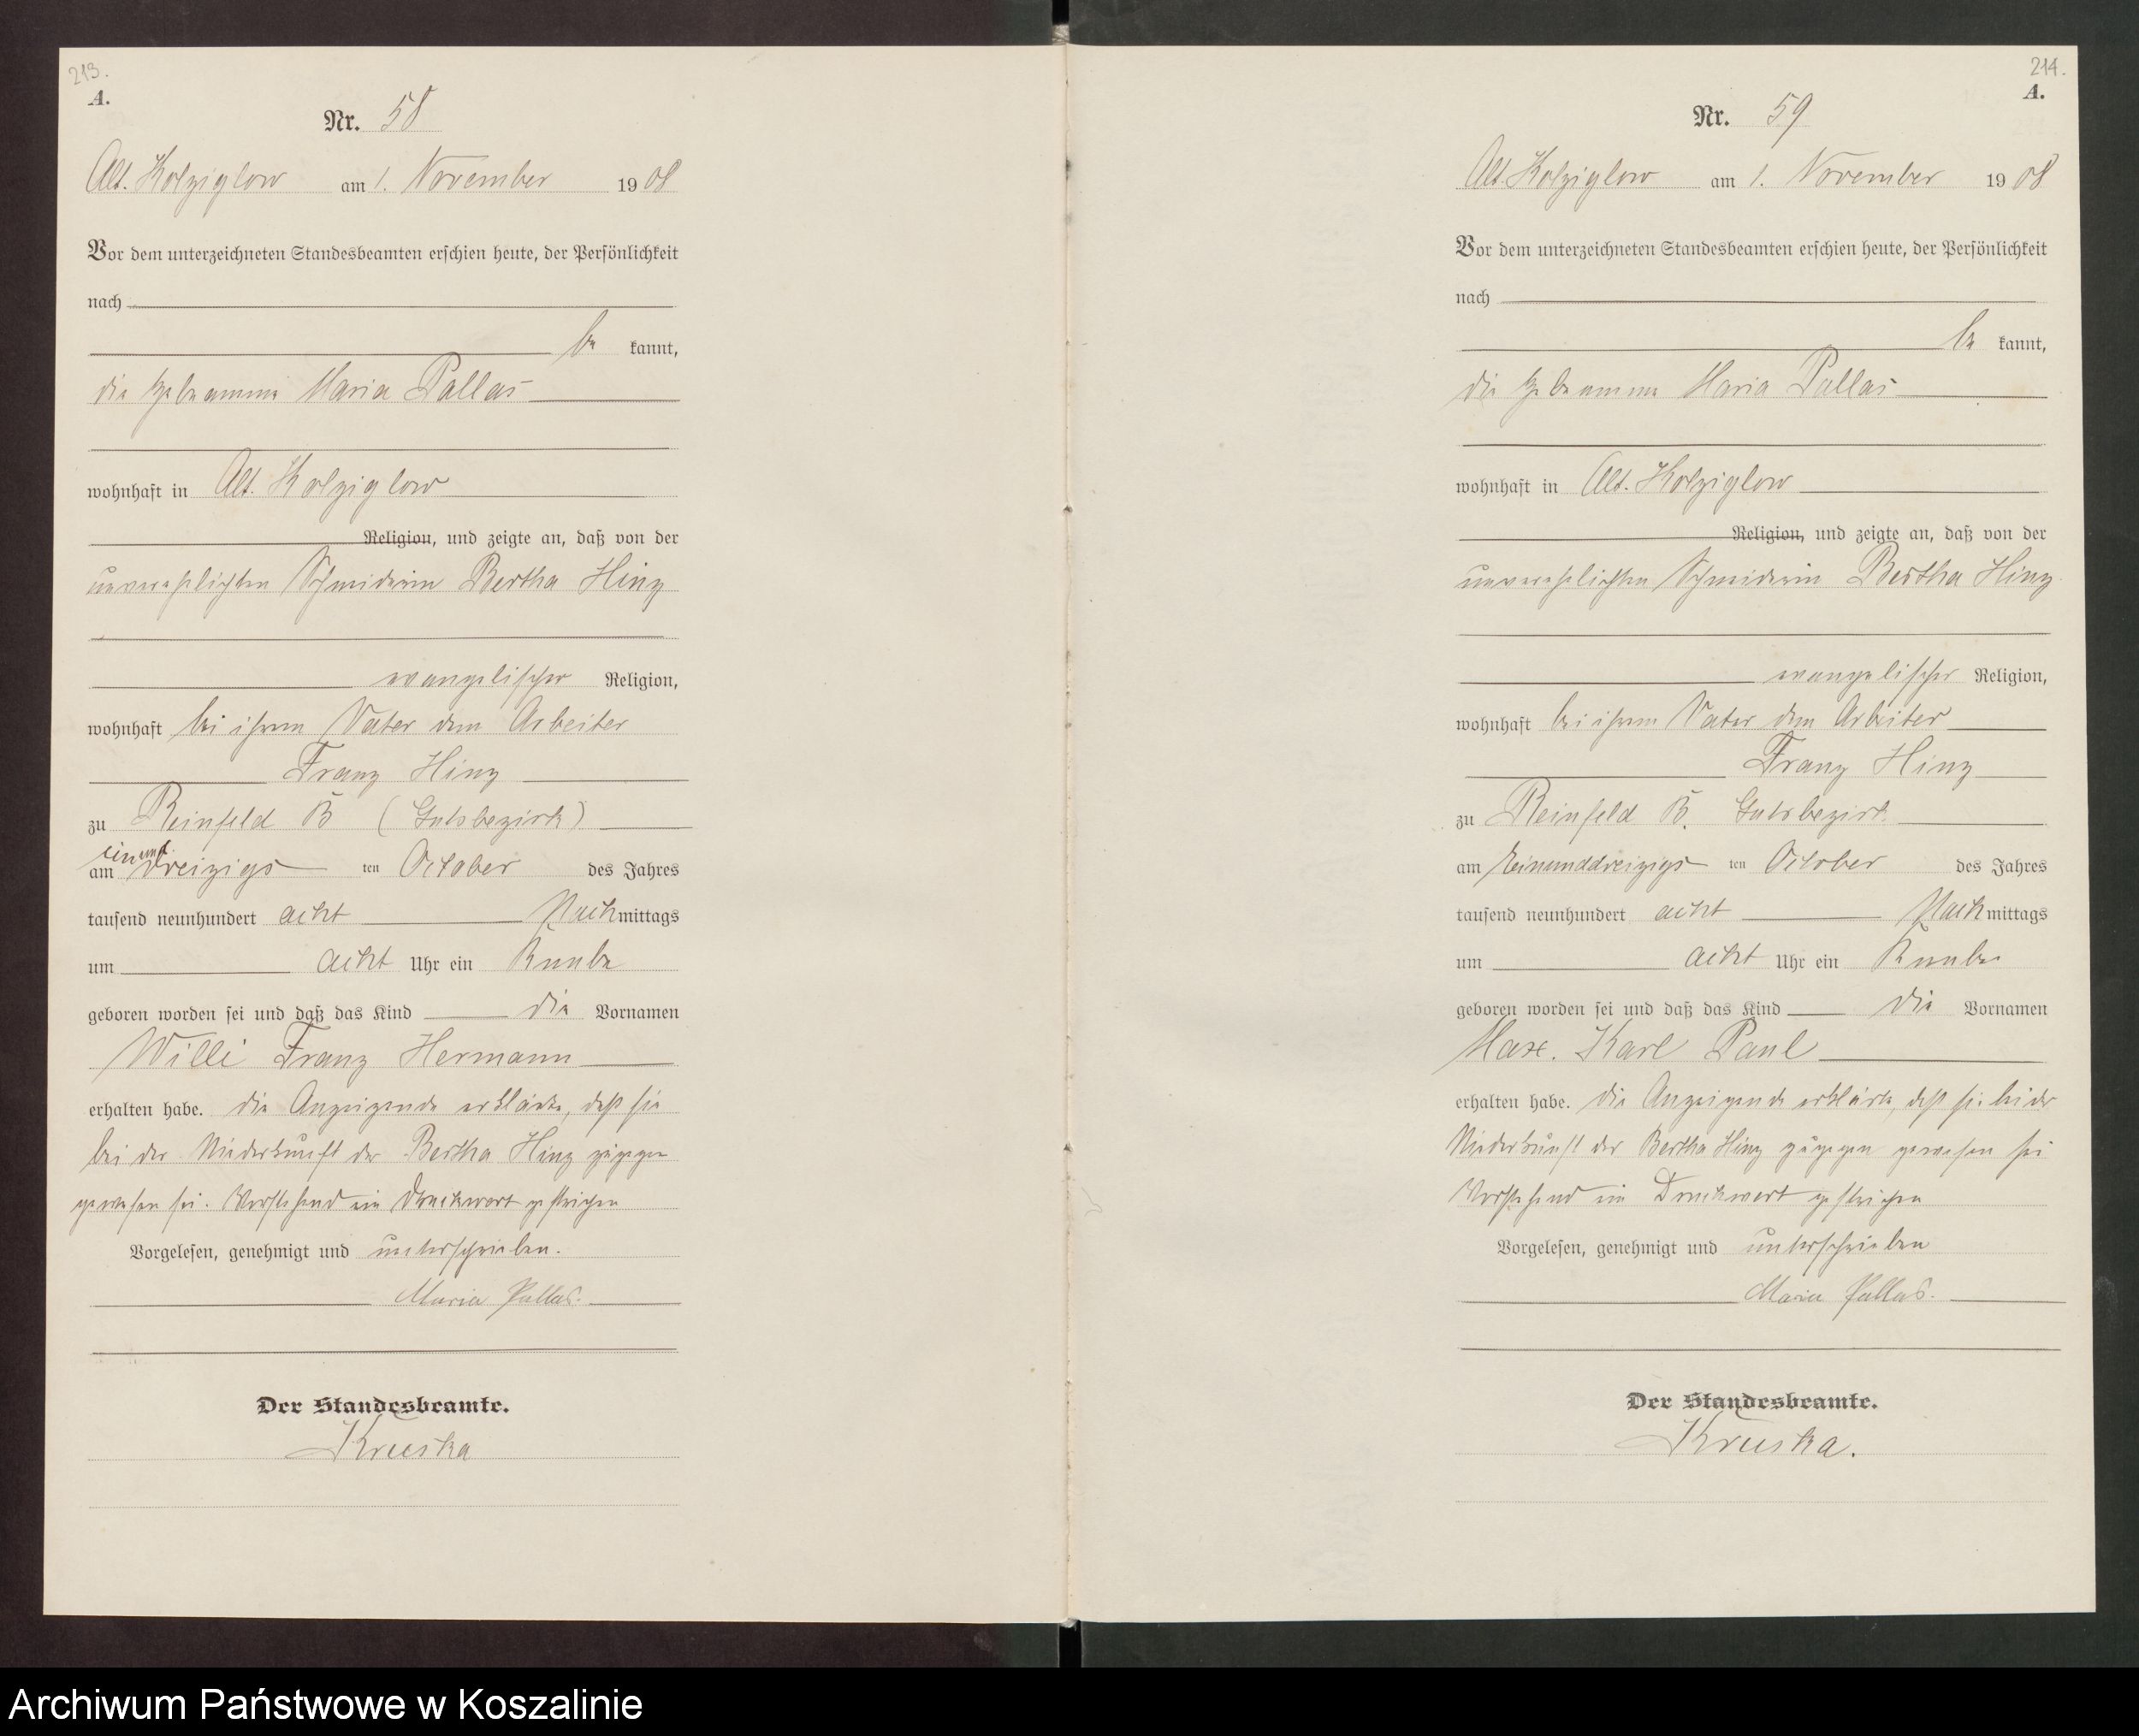 213.
A.
Nr. 58
Alt. Kolziglow am 1. November 1908
Vor dem unterzeichneten Standesbeamten erschien heute, der Persönlichkeit
nach
be kannt,
die Hebeamme Maria Pallas
wohnhaft in Alt. Kolziglow
Religion, und zeigte an, daß von der
unverehelichten Schneiderin Bertha Hinz
evangelischer Religion,
wohnhaft bei ihrem Vater dem Arbeiter
Franz Hinz
zu Reinfeld B (Gutsbezirk)
am einunddreizigsten October des Jahres
tausend neunhundert acht Nachmittags
um acht Uhr ein Knabe
geboren worden sei und daß das Kind die Vornamen
Willi Franz Hermann
erhalten habe. die Anzeigende erklärte, daß sie
bei der Niederkunft der Bertha Hinz zugegen
gewesen sei. Vorstehend ein Druckwort gestrichen
Vorgelesen, genehmigt und unterschrieben.
Maria Pallas.
Der Standesbeamte.
Kruska
214.
A.
Nr. 59
Alt. Kolziglow am 1. November 1908
Vor dem unterzeichneten Standesbeamten erschien heute, der Persönlichkeit
nach
be kannt,
die Hebeamme Maria Pallas
wohnhaft in Alt. Kolziglow
Religion, und zeigte an, daß von der
unverehelichten Schneiderin Bertha Hinz
evangelischer Religion,
wohnhaft bei ihrem Vater dem Arbeiter
Franz Hinz
zu Reinfeld B. Gutsbezirk
am Einunddreizigsten October des Jahres
tausend neunhundert acht Nachmittags
um acht Uhr ein Knabe
geboren worden sei und daß das Kind die Vornamen
Max. Karl Paul
erhalten habe. die Anzeigende erklärte, daß sie bei der
Niederkunft der Bertha Hinz zugegen gewesen sei
Vorstehend ein Druckwort gestrichen
Vorgelesen, genehmigt und unterschrieben
Maria Pallas.
Der Standesbeamte.
Kruska.
Archiwum Państwowe w Koszalinie